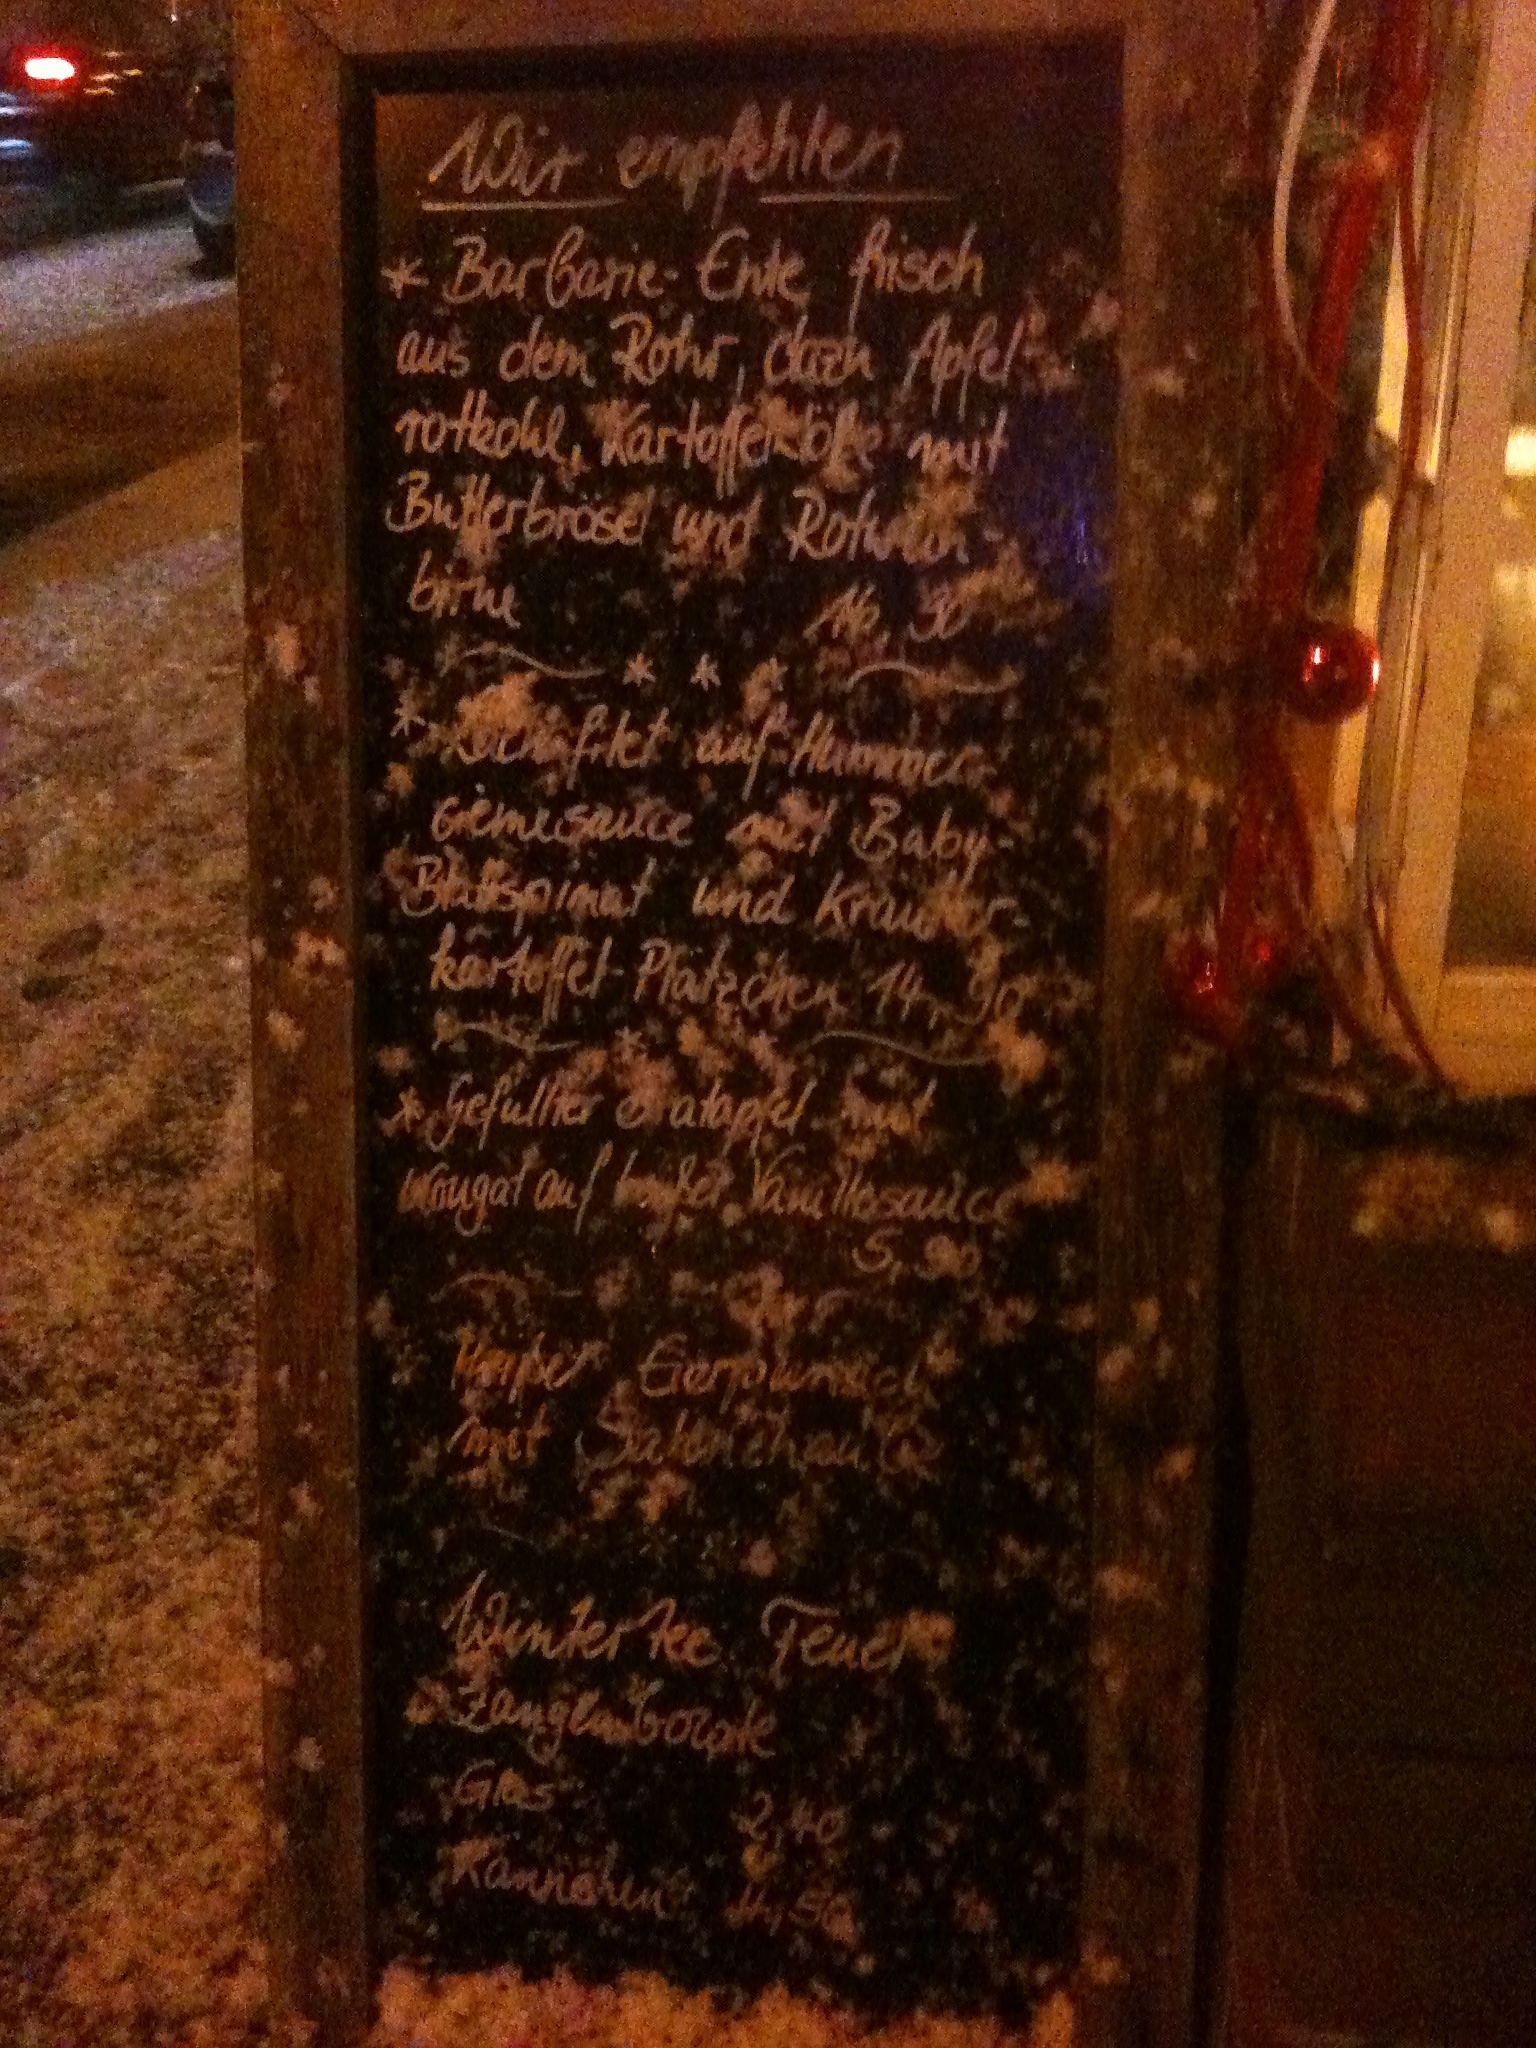 Wir empfehlen
* Barbarie-Ente frisch
aus dem Rohr, dazu Apfel-
rotkohl, Kartoffelklöße mit
Butterbrösel und Rotwein-
birne 16,90
* * *
* auf Hummer-
cremesauce mit Baby-
Blattspinat und Kräuter-
kartoffel-Plätzchen 14,90
* Gefüllter Bratapfel mit
Nougat auf heißer Vanillesauce
5,90
* Heißer Eierpunsch
mit Sahnehaube
Wintertee Feuer-
zangenbowle
Glas 2,40
Kännchen 4,50